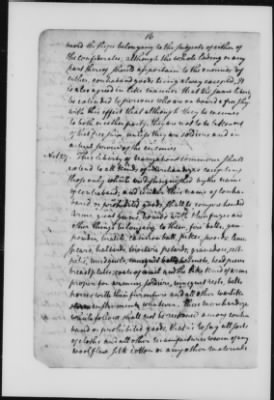 16
board the ships belonging to the subjects of either of
the confederates, although the whole lading or any
part thereof should appertain to the enemies of
either, contraband goods being always excepted, It
is also agreed in like manner that the same liberty
be extended to persons who are on board a free ship
with this effect that although they be enemies
to both or either party, they are not to be taken out
of that free ship, unless they are soldiers and in
actual service of the enemies
Art. 27. This liberty of navigation & commerce shall
extend to all kinds of merchandizes excepting
those only which are distinguished by the name
of contraband; and under this name of contra-
band or prohibited goods, shall be comprehended
arms, great guns, bombs with their fuzes and
other things belonging to them, fire balls, gun
powder, match, cannon ball, pikes, swords, lances
spears, halberds, mortars, petards, granadoes, salt-
petre, musquets, musquet ball, helmets, head pieces
breast plates, coats of mail and the like kind of arms
proper for arming soldiers, musquet rests, belts
horses with their furniture and all other warlike
instruments whatever. These merchandizes
which follow shall not be reckoned among contra
band or prohibited goods, that is to say all sorts
of cloths and all other manufactures woven of any
wool flax silk cotton or any other materials